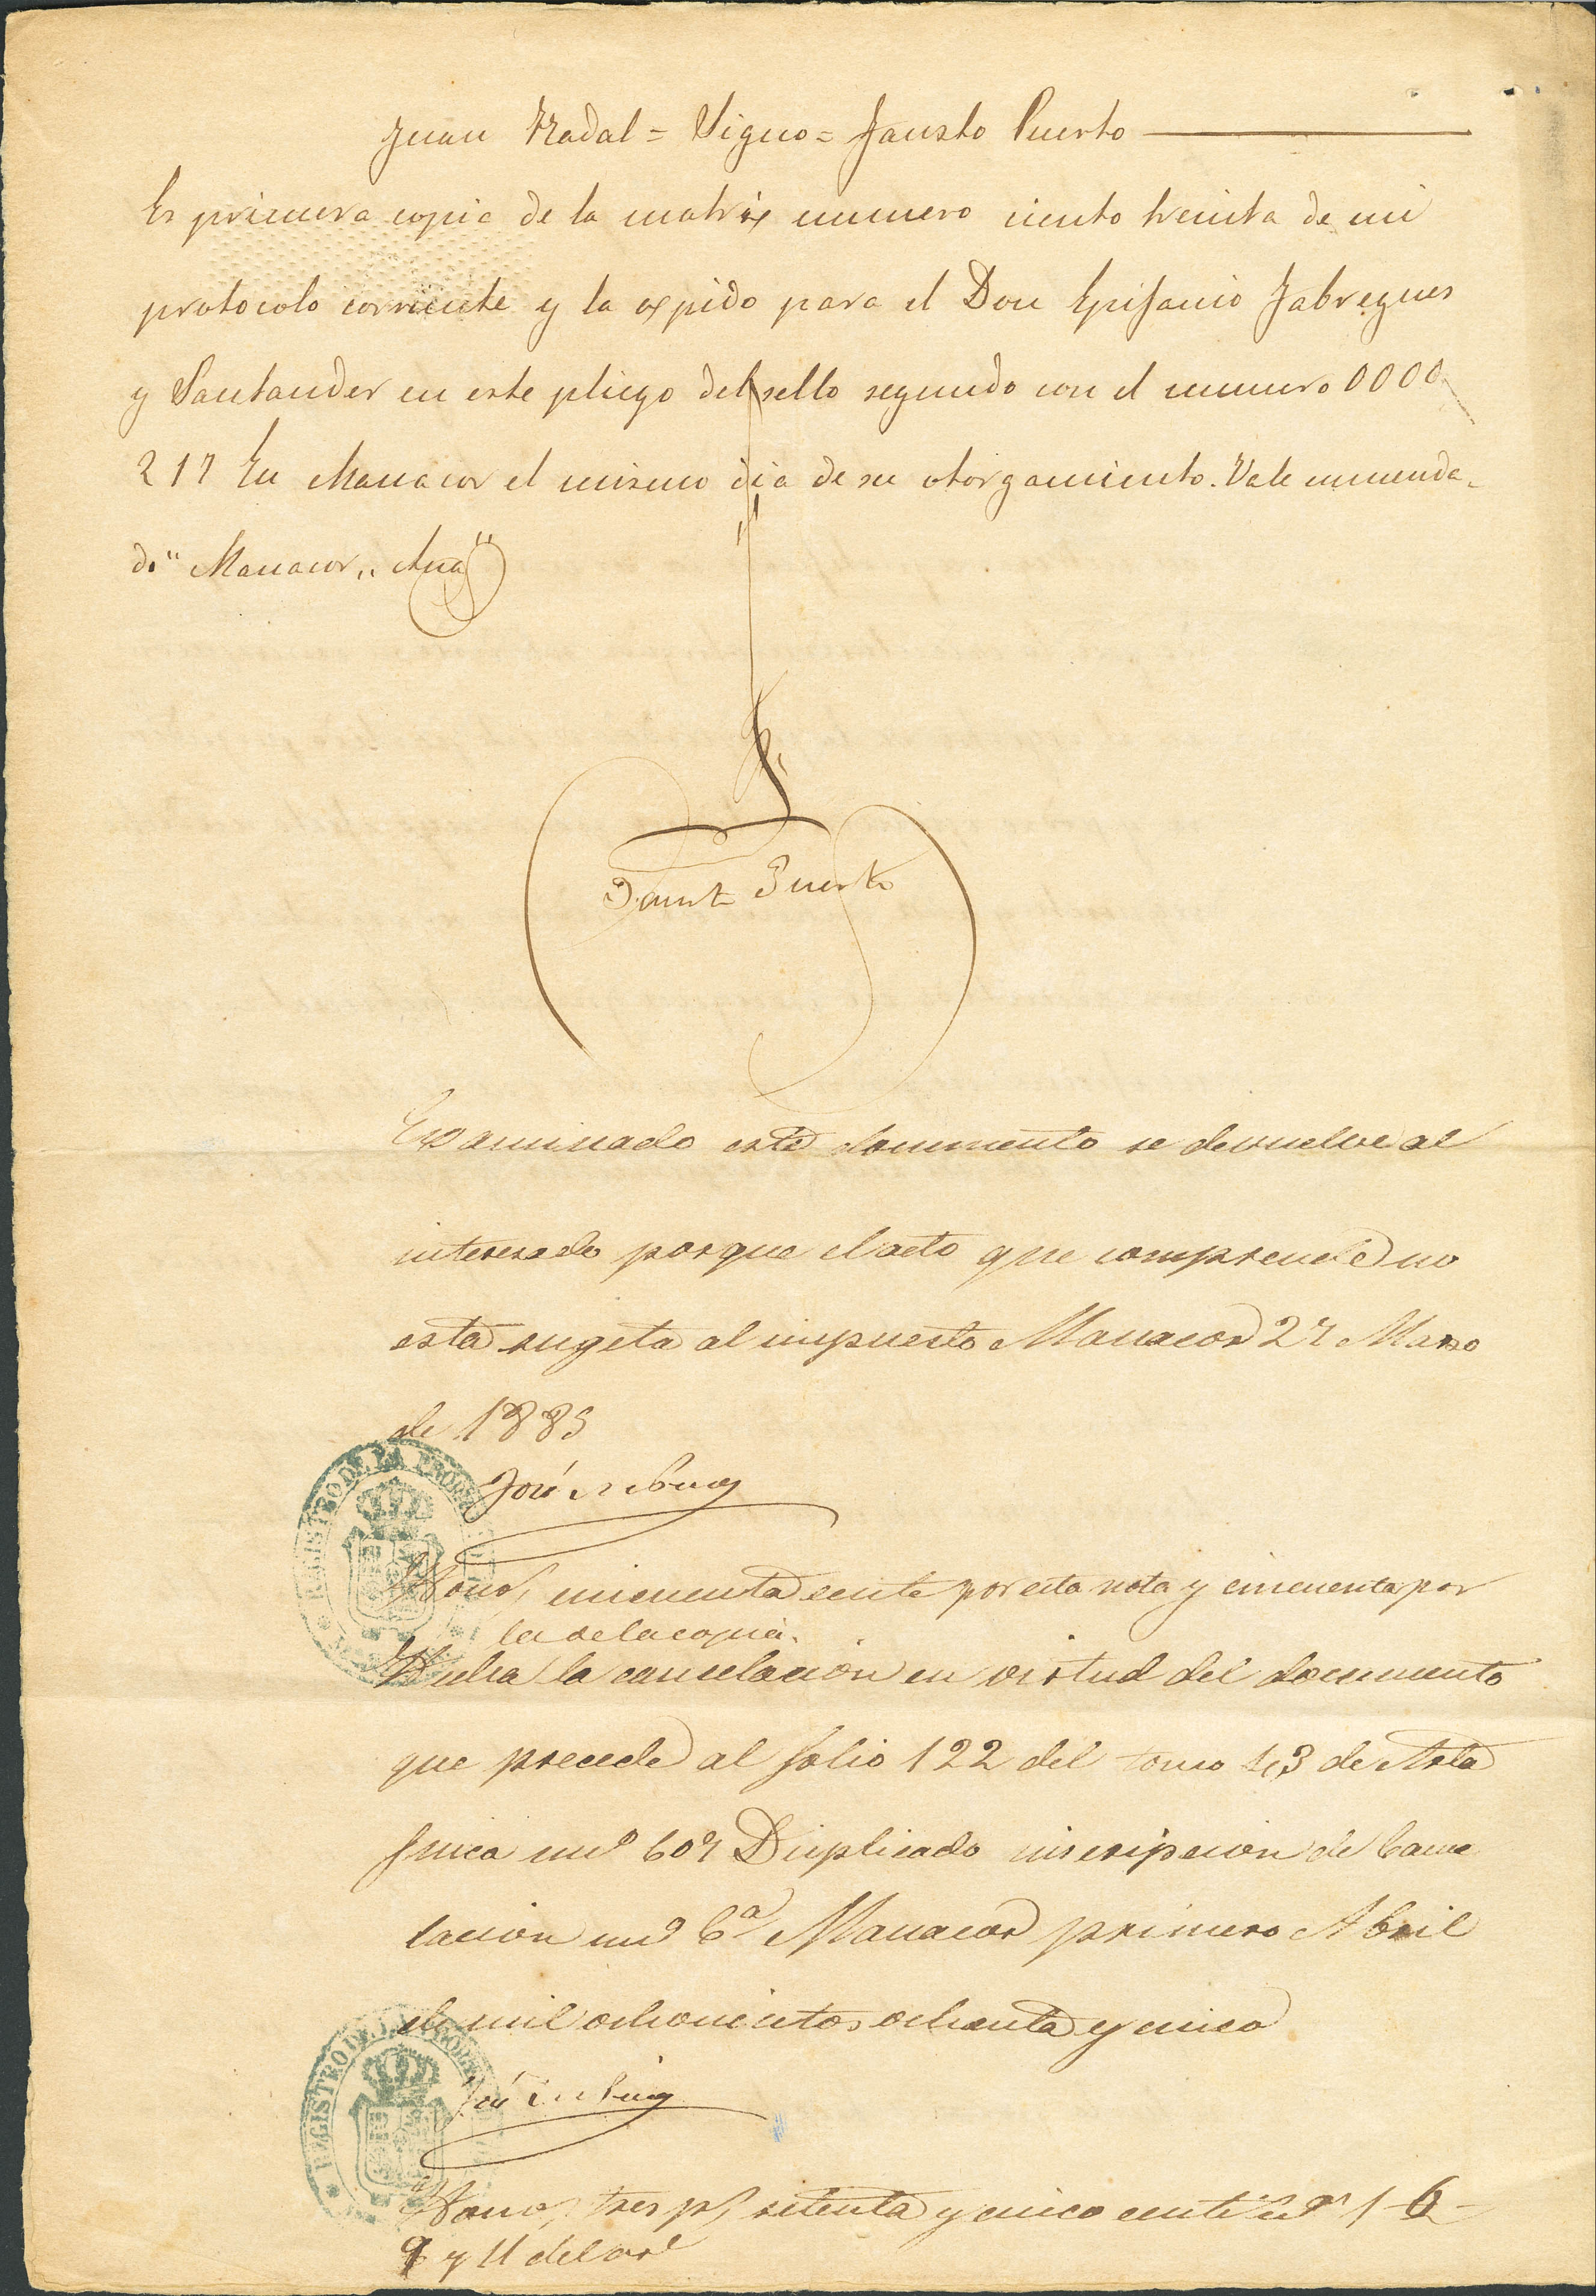 Juan Nadal = Signo = Fausto Puerto
Es primera copia de la matriz numero ciento treinta de mi
protocolo corriente y la expido para el Don Epifanio Fabregues
y Santander en este pliego del sello segundo con el numero 0000
217 En Manacor el mismo dia de su otorgamiento. Vale enmenda-
do " Manacor,, Ana"
Faust Puerto
Examinado este documento se devuelve al
interesado porque el acto que comprende no
está sugeta al impuesto Manacor 27 Marzo
de 1885
José
REGISTRO DE LA PROPIEDAD
Honos cincuenta cents por esta nota y cincuenta por
la de la copia.
Hecha la cancelacion en virtud del documento
que precede al folio 122 del tomo 43 de Arta
finca nuº 607 Duplicado inscripcion de Cance
lacion nuº 6ª Manacor primero Abril
de mil ochocientos ochenta y cinco
José
REGISTRO DE LA PROPIEDAD
Honos tres ps setenta y cinco cents nos 1-6-
9 y 11 del arl